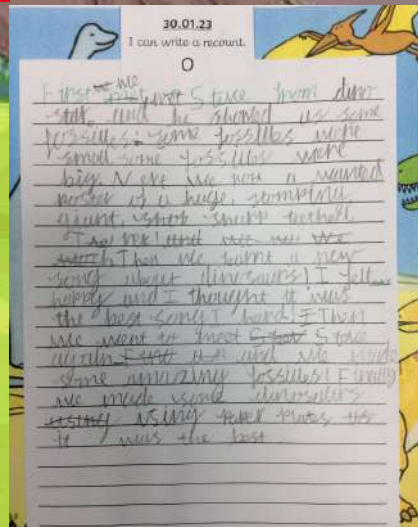 30.01.23
I can write a recount.
First we met Steve from dino
star and he showed us some
fossilles. some fossiles were
small some fossiles were
big. Next we a wanted
poster of a huge, stomping,
giant, sharp teethed,
T rex!
Then we learnt a new
song about dinosaurs! I felt
happy and I thought it was
the best song I herd! Then
we went to meet Steve
again and we made
some amazing fossilles! Finally
we made some dinosaurs
using paper plates
it was the best